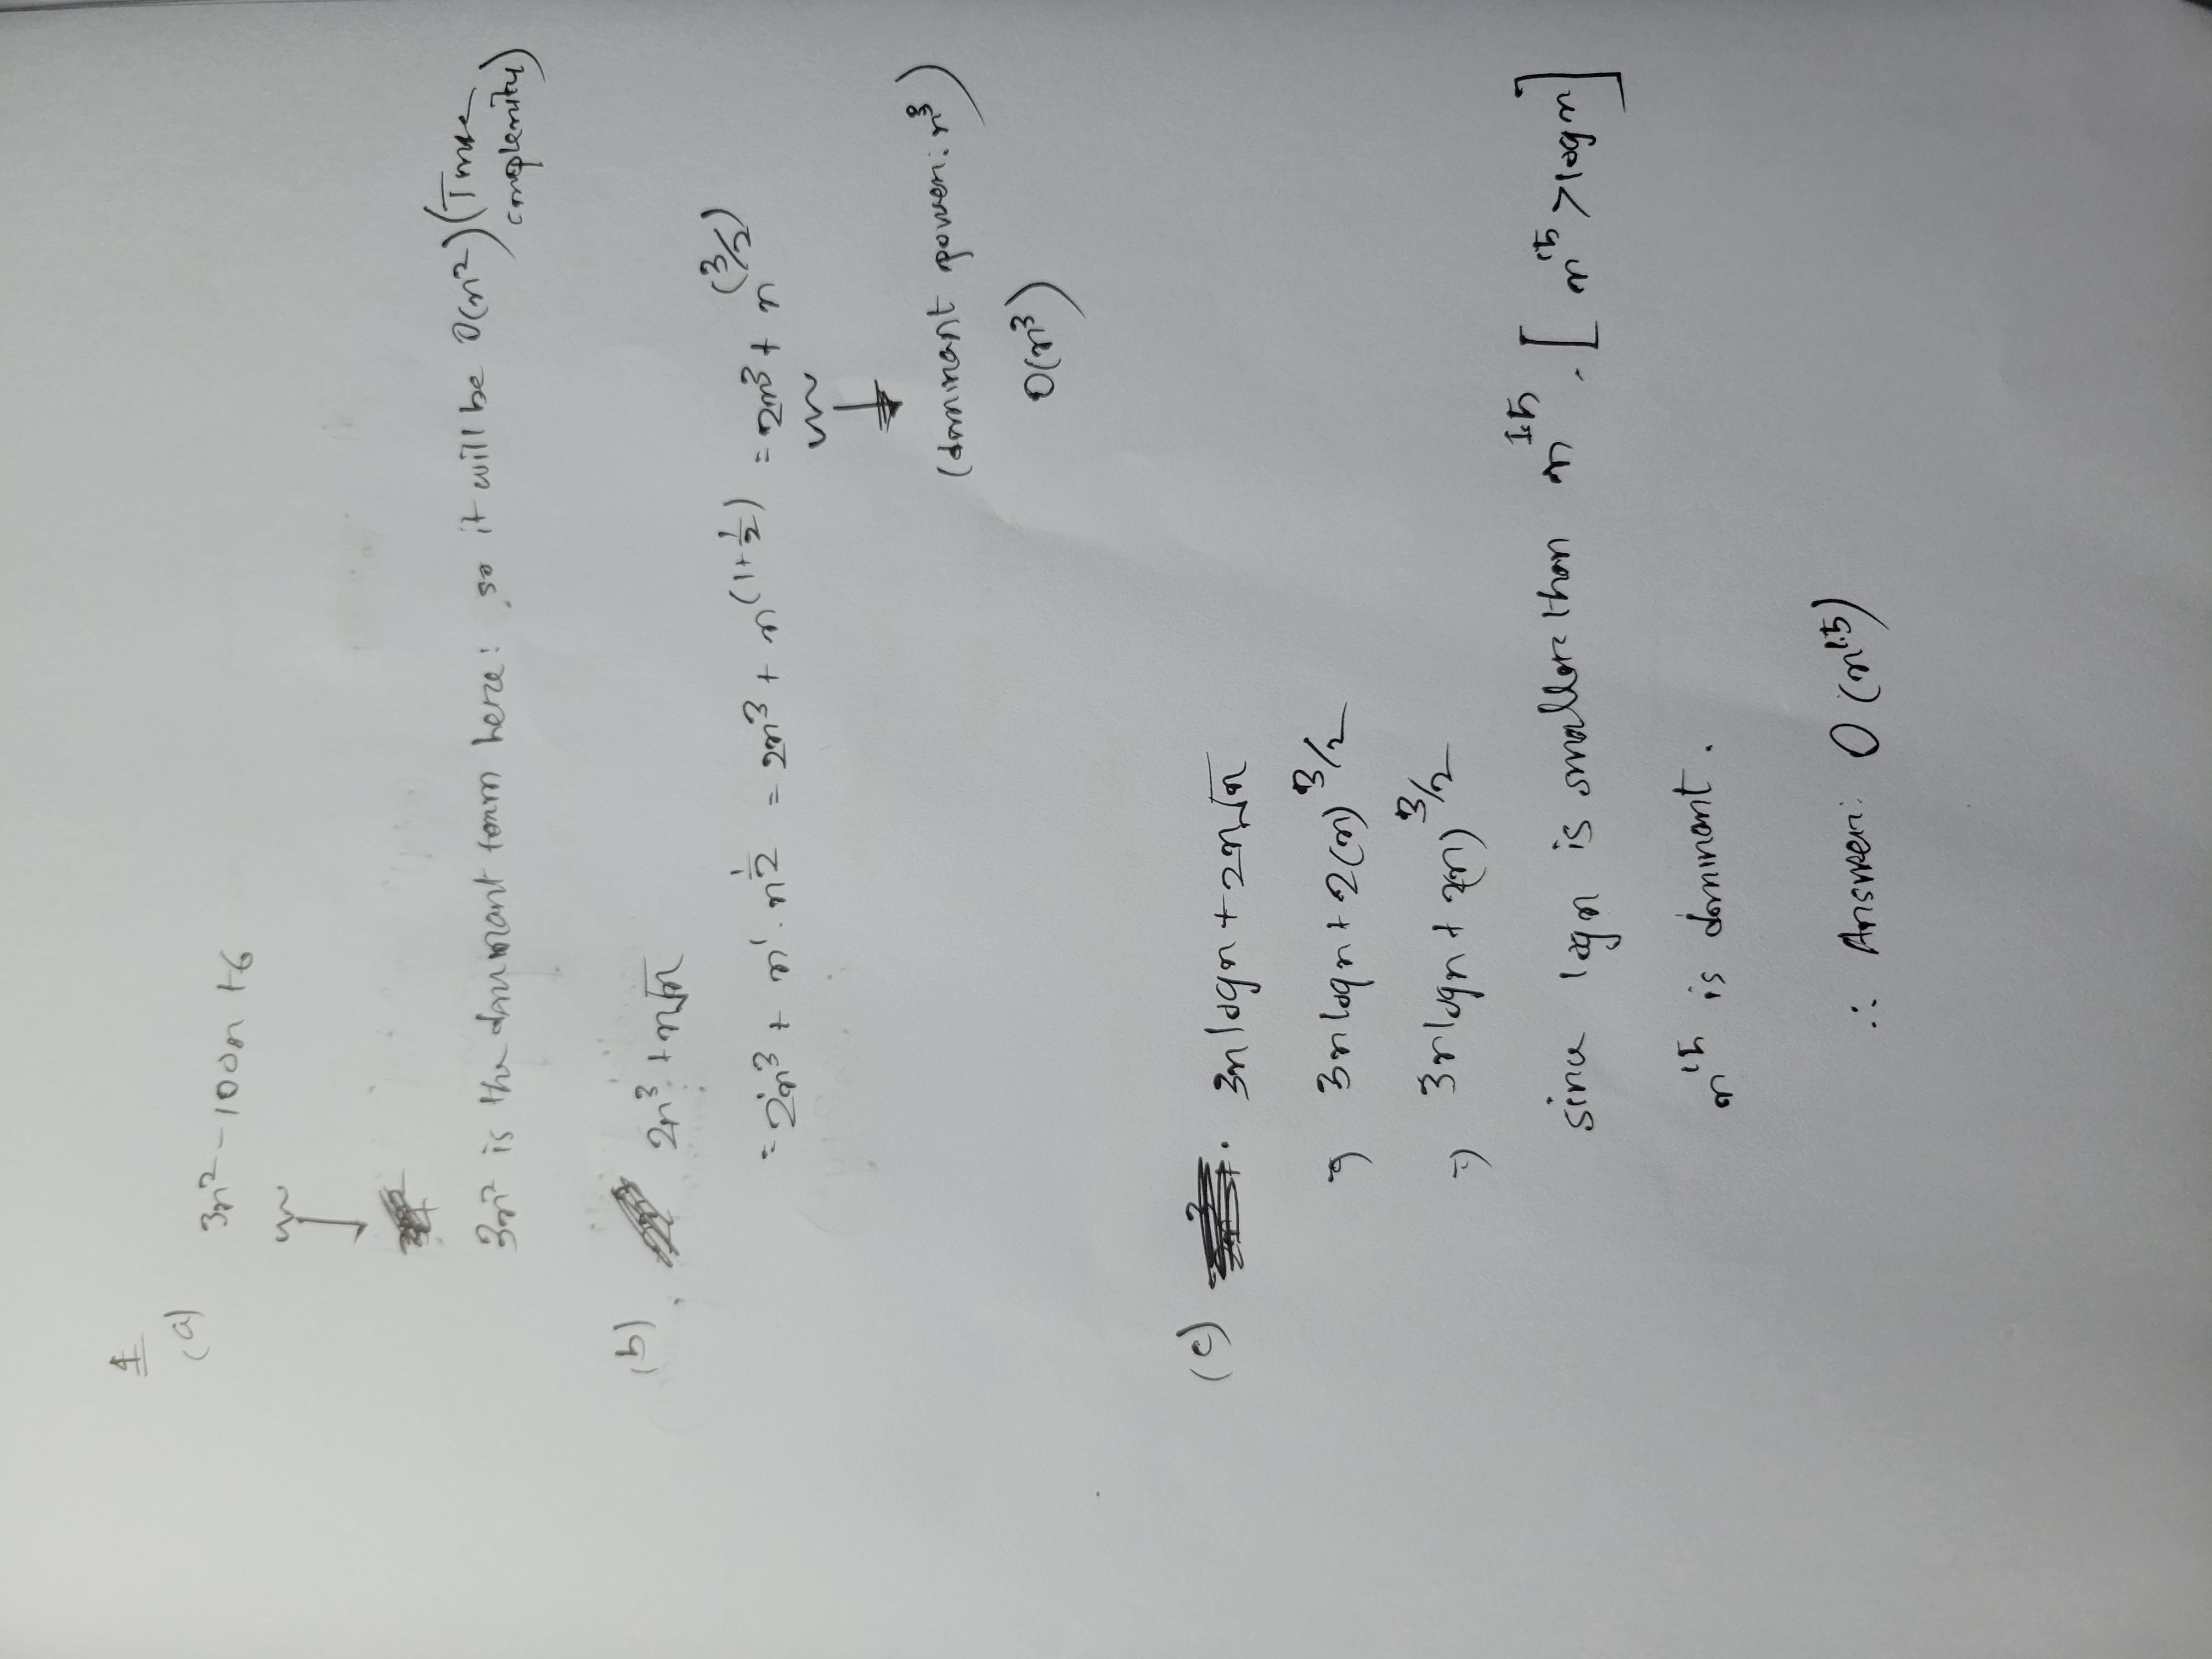 4
(a)
3n² - 100n + 6
3n² is the dominant term here: so it will be O(n²) (Time
complexity)
(b) 2n³ + n√n
= 2n³ + n¹ . n^½ = 2n³ + n^(1+½) = 2n³ + n^(3/2)
(dominant power: n³)
O(n³)
(c) 3n logn + 2n√n
⇒ 3n logn + 2(n)^3/2
⇒ 3n logn + 2(n)^3/2
since logn is smaller than n^1.5 . [n^1.5 > logn]
n^1.5 is dominant.
∴ Answer: O(n^1.5)